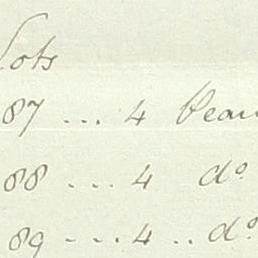 Lots
87 ... 4 beau
88 .... 4 do
89 ---. 4 .. do